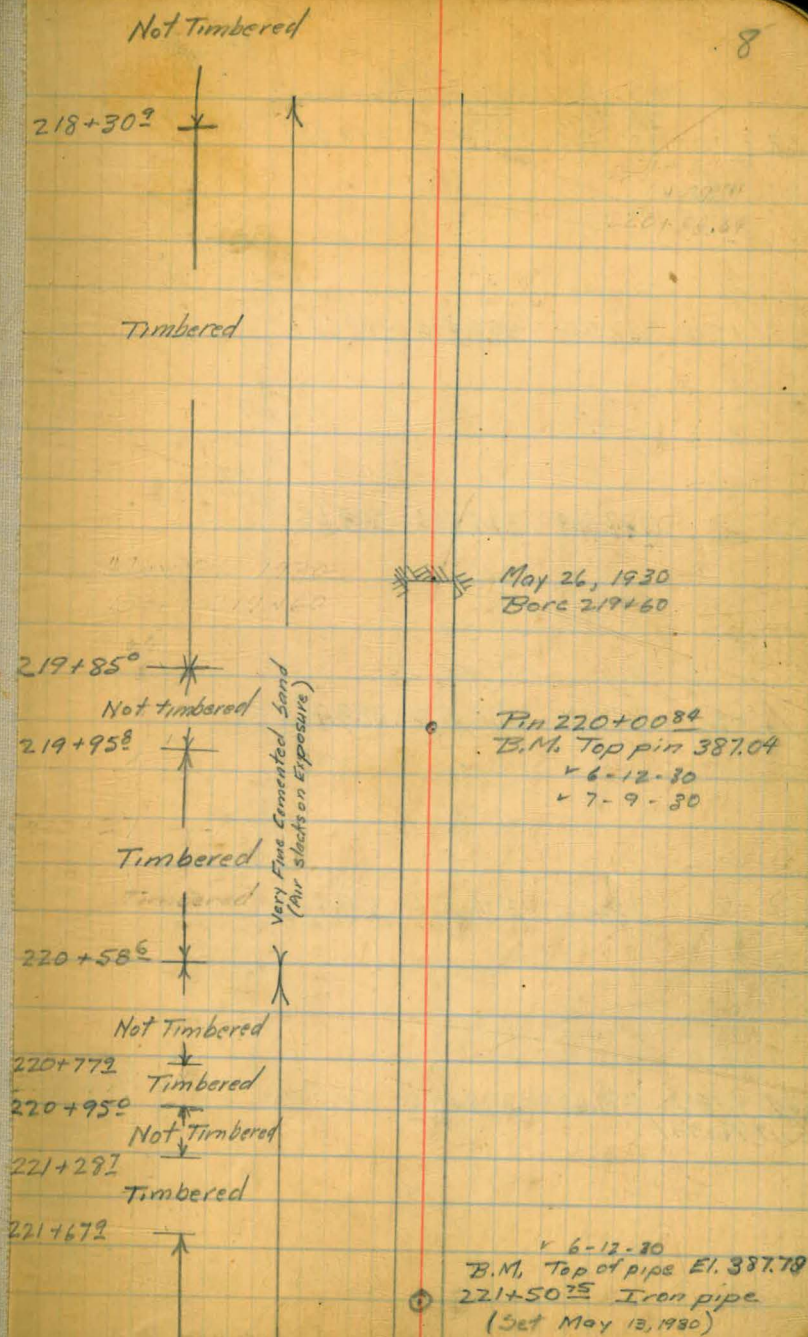 Not Timbered
8
218+30⁹
Timbered
May 26, 1930
Bore 219+60
219+85⁰
Not timbered
219+95⁸
Very Fine Cemented Sand
(Air slacks on Exposure)
Pin 220+00⁸⁴
B.M. Top pin 387.04
✓ 6-12-30
✓ 7-9-30
Timbered
220+58⁶
Not Timbered
220+77⁹
Timbered
220+95⁰
Not Timbered
221+28⁷
Timbered
221+67⁹
✓ 6-12-30
B.M. Top of pipe El. 387.78
221+50⁷⁵ Iron pipe
(Set May 13, 1930)